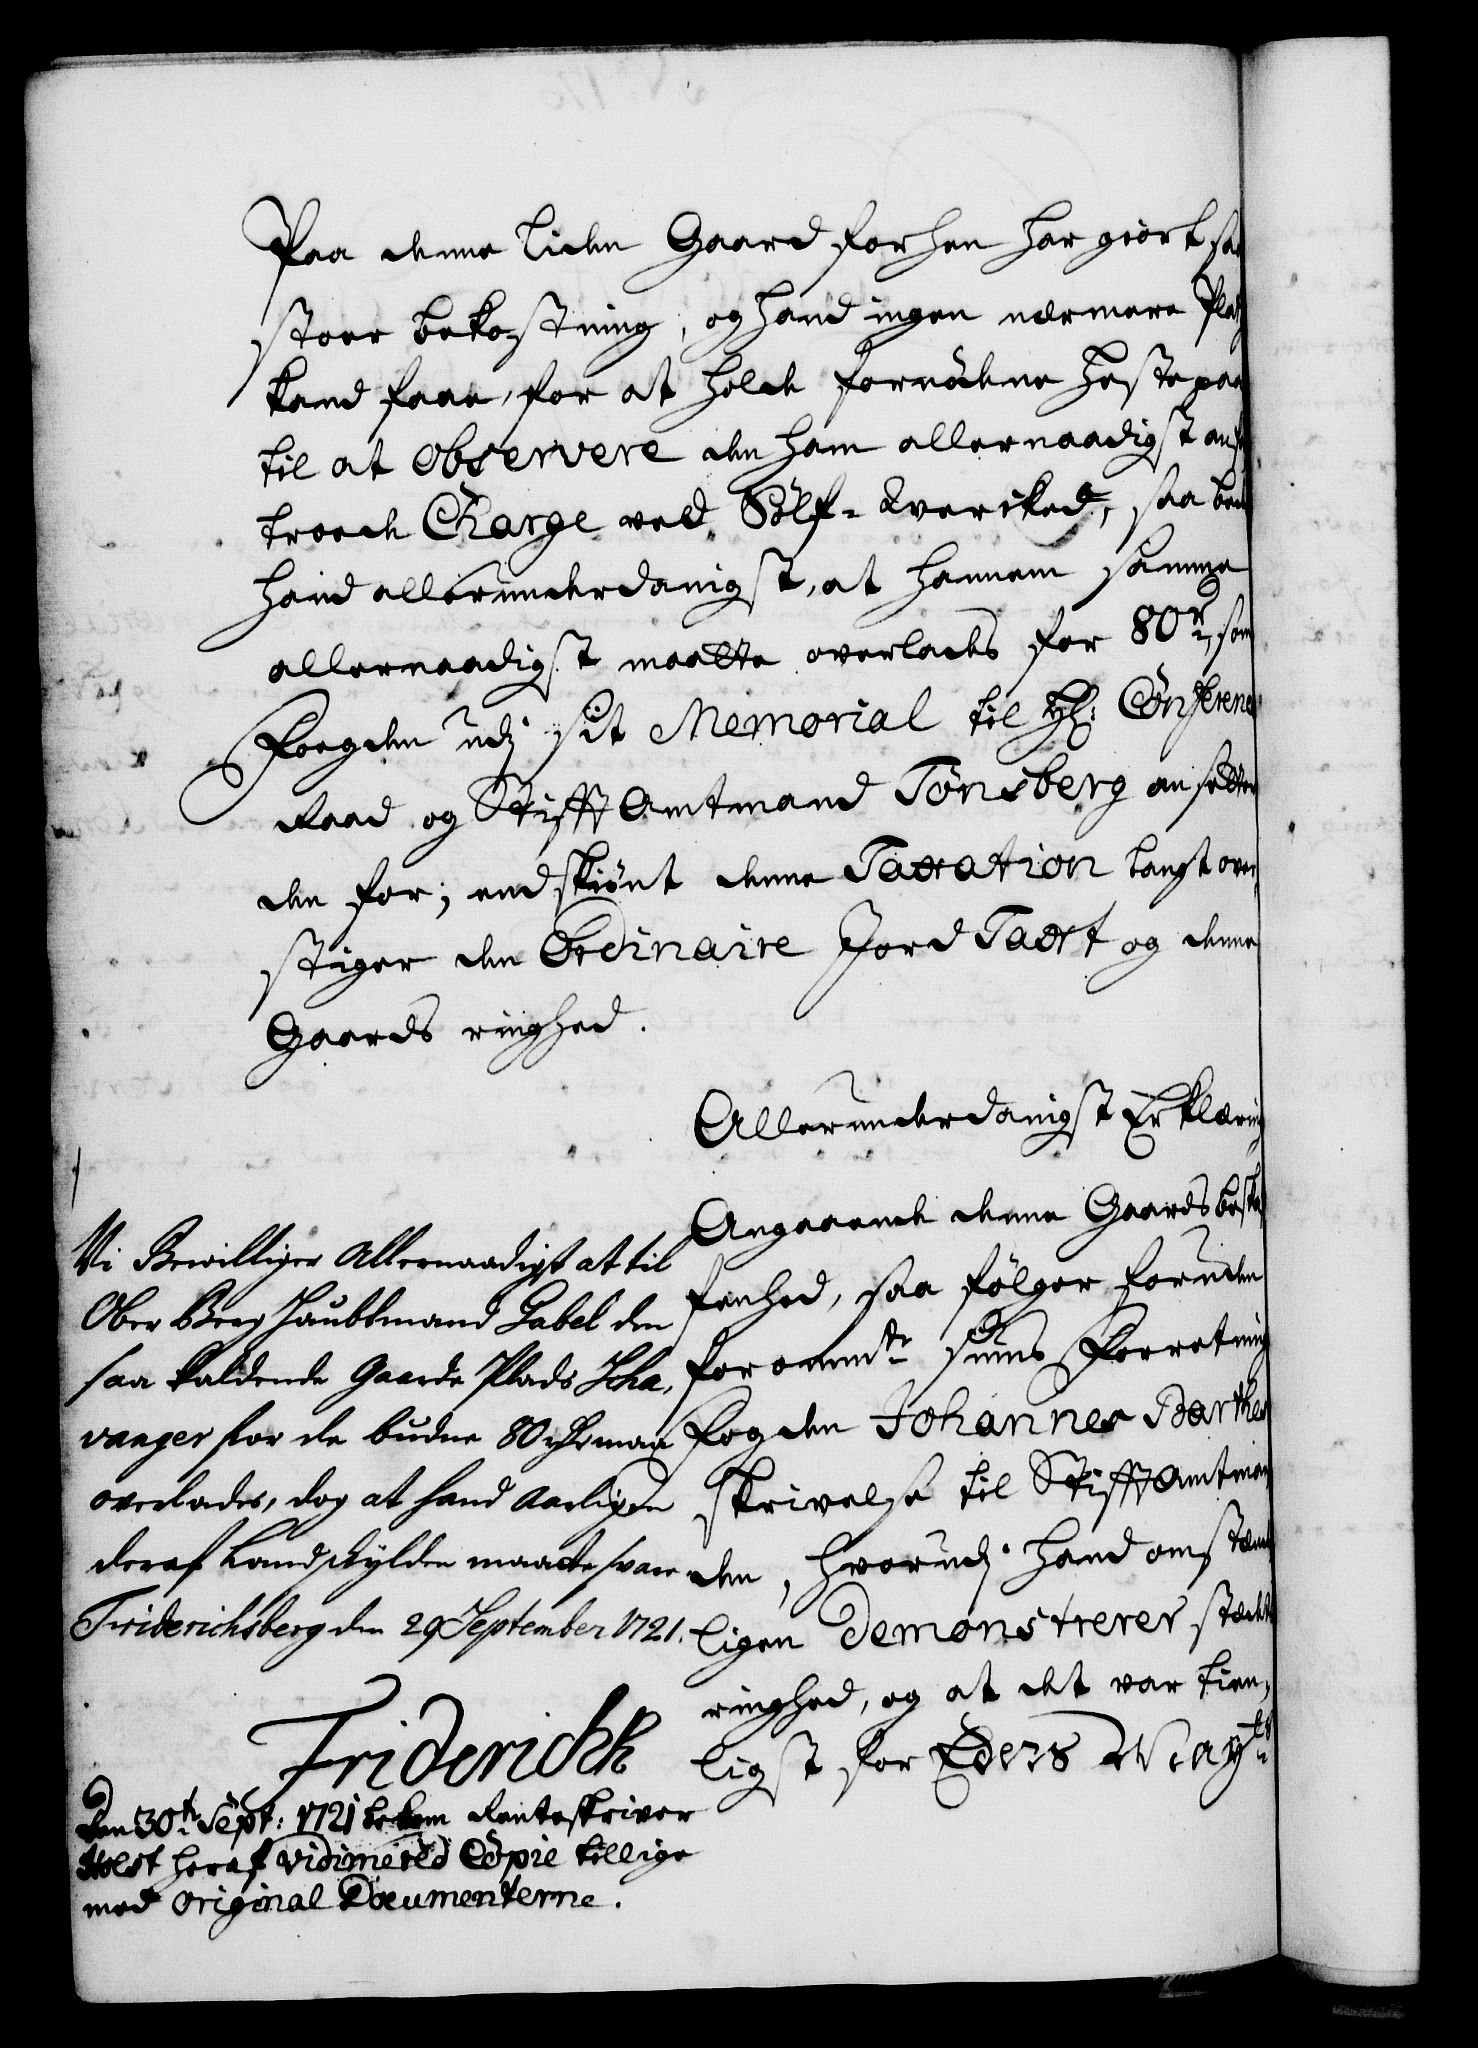 Paa denne liden Gaard forhen har giort saa
stoer bekostning, og hand ingen nærmere Platz
kand faae, for at holde fornødene Heste paa
til at observere den ham allernaadigst an-
troede Charge ved Sølf-Verched, saa beder
hand allerunderdanigst, at hannem samme
allernaadigst maatte overlades for 80 rd, som
Fogden udj sit Memorial til Hr: Conference
Raad og Stifft Amtmand Tønsberg ansetter
den for; endskiønt denne Taxation langt over-
stiger den Ordinaire Jord Taxt og denne
Gaards ringhed.
Allerunderdanigst Erklæring
Angaaende denne Gaards beskaf-
fenhed, saa følger foruden
forommte Siuns Forretning
Fogden Johannes Barthes
skrivelse til Stifft Amtman-
den, hvorudj hand omstænd-
ligen Demonstrerer stædets
ringhed, og at det var tien-
ligst for Eders Mayts
Vi Bewilliger Allernaadigst at til
Ober Berg Haubtmand Gabel den
saa kaldende Gaarde Plads Scha-
vanger for de budne 80 rdr maa
overlades, dog at hand Aarligen
deraf Landskylden maatte svare
Friderichsberg den 29 September 1721.
Friderich R
Den 30te Sept: 1721 bekom Renteskriver
Holst heraf vidimered Copie tillige
med Original Documenterne.